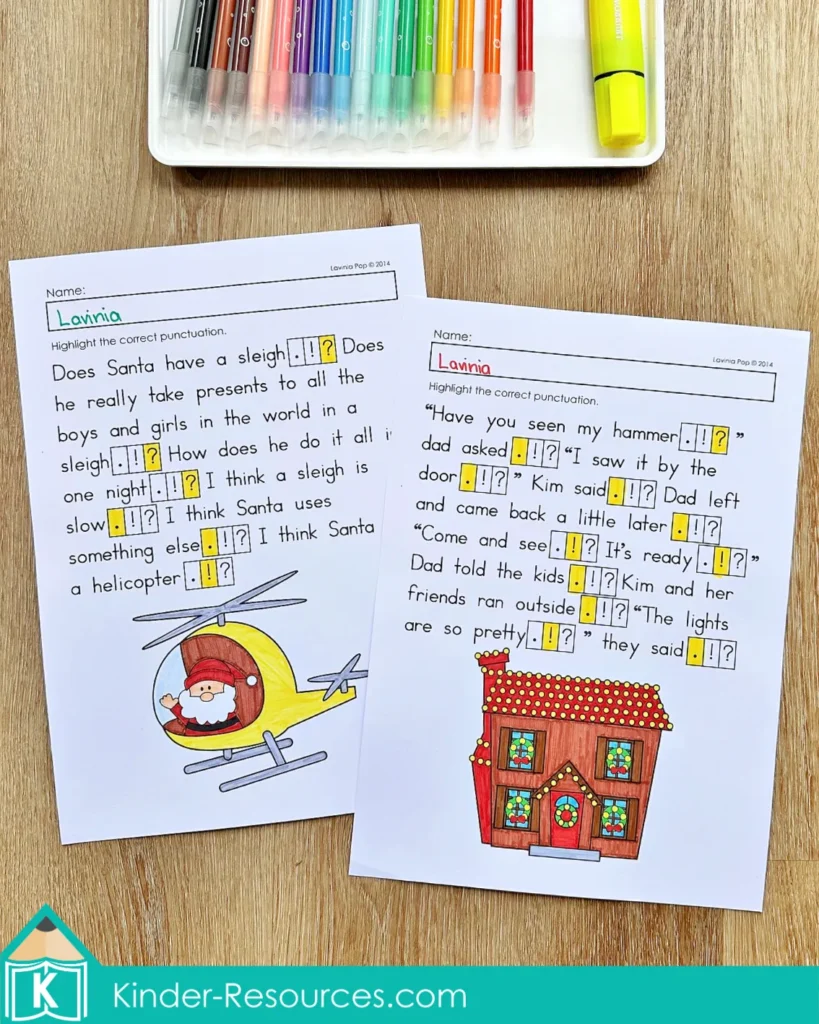 Lavinia Pop © 2014
Name:
Lavinia
Highlight the correct punctuation.
Does Santa have a sleigh . ! ? Does
he really take presents to all the
boys and girls in the world in a
sleigh . ! ? How does he do it all
one night . ! ? I think a sleigh is
slow . ! ? I think Santa uses
something else . ! ? I think Santa
a helicopter . ! ?
Name:
Lavinia Pop © 2014
Lavinia
Highlight the correct punctuation.
“Have you seen my hammer . ! ? ”
dad asked . ! ? “I saw it by the
door . ! ? ” Kim said . ! ? Dad left
and came back a little later . ! ?
“Come and see . ! ? It’s ready . ! ? ”
Dad told the kids . ! ? Kim and her
friends ran outside . ! ? “The lights
are so pretty . ! ? ” they said . ! ?
K
Kinder-Resources.com